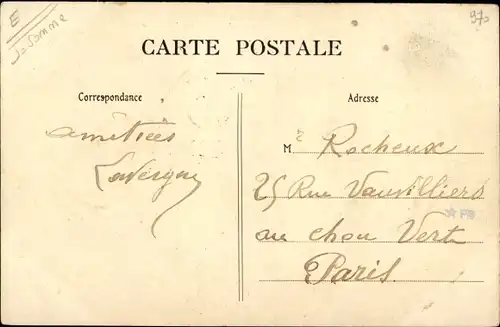 E
La Somme
970
CARTE POSTALE
Correspondance
Adresse
amitiées
Lavergne
Mr Rocheux
25 Rue Vauvilliers
au chou Vert
Paris.